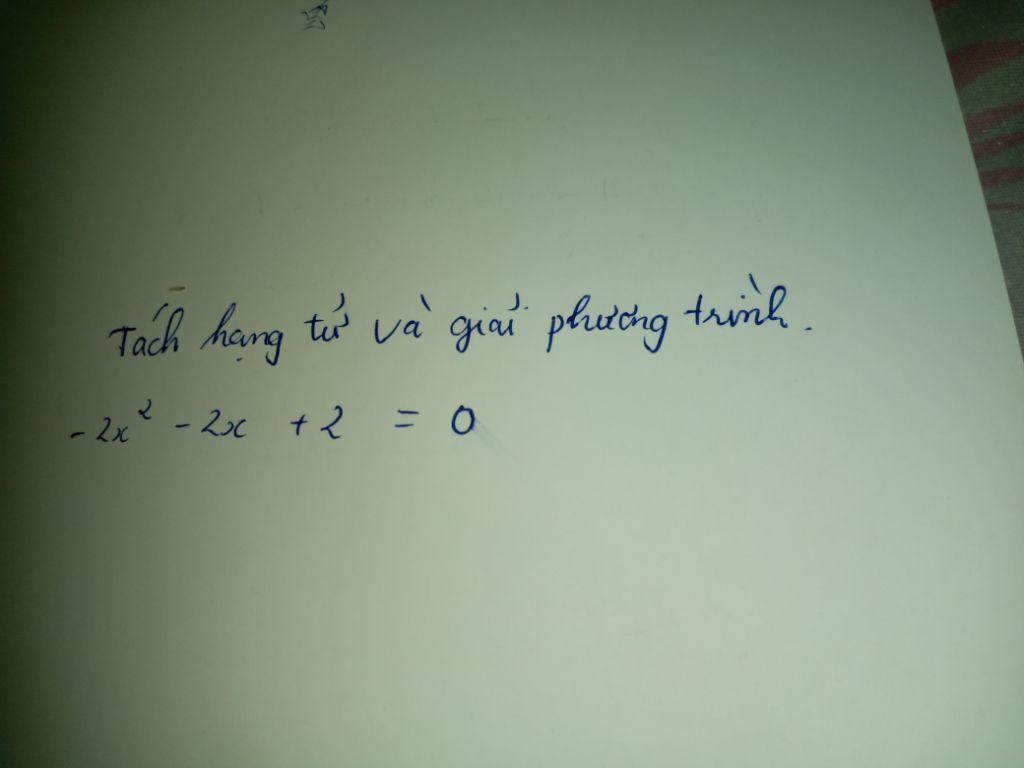 Tách hạng tử và giải phương trình.
-2x² - 2x + 2 = 0